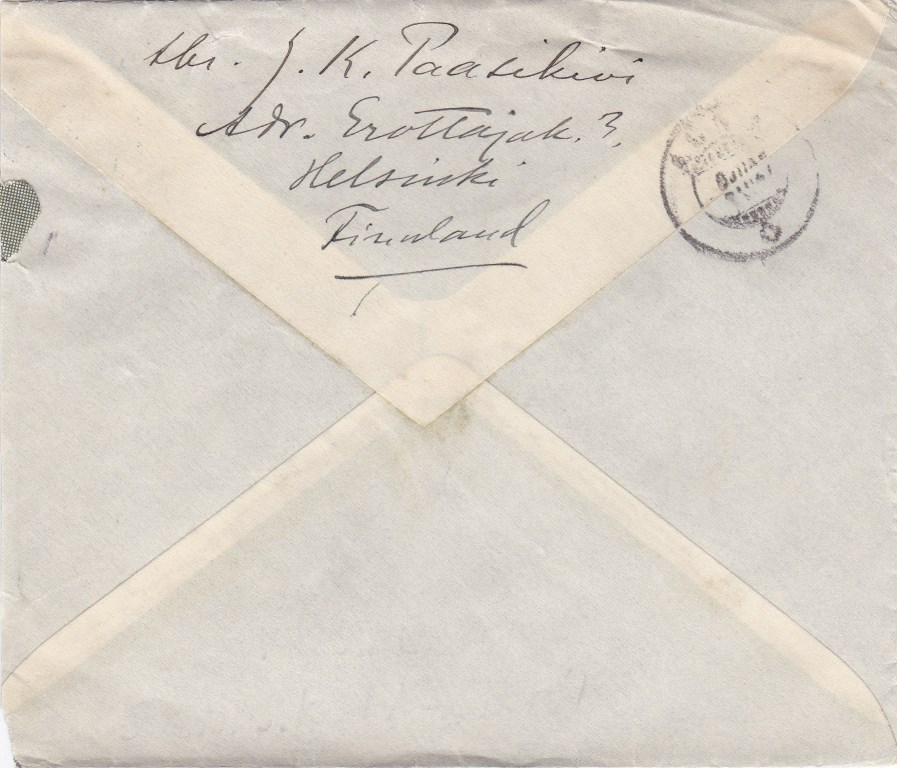 J. K. Paasikivi
Adr. Erottajak. 3,
Helsinki
Finnland